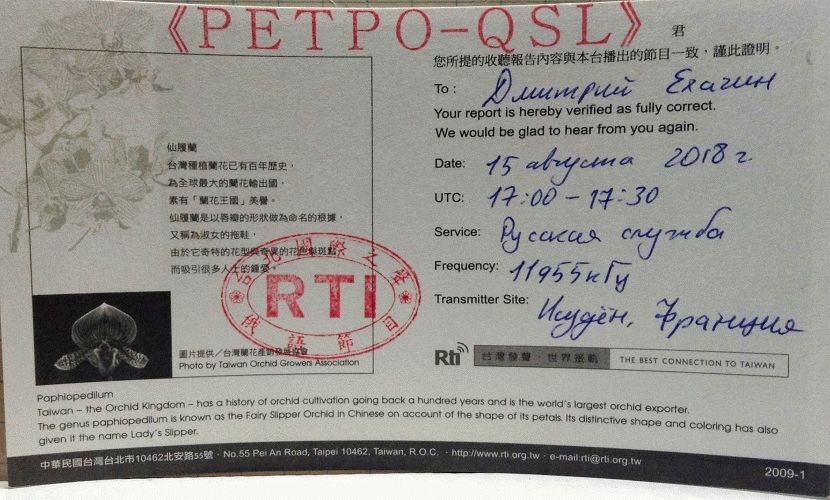 《РЕТРО-QSL》
君
您所提的收聽報告內容與本台播出的節目一致，謹此證明。
To : Дмитрий Елагин
Your report is hereby verified as fully correct.
We would be glad to hear from you again.
Date: 15 августа 2018 г.
UTC: 17:00 – 17:30
Service: Русская служба
Frequency: 11955 кГц
Transmitter Site: Исудён, Франция
仙履蘭
台灣種植蘭花已有百年歷史，
為全球最大的蘭花輸出國，
素有「蘭花王國」美譽。
仙履蘭是以唇瓣的形狀做為命名的根據，
又稱為淑女的拖鞋，
由於它奇特的花型與奇異的花色與斑點
而吸引很多人士的鍾愛。
台北國際之聲
RTI
俄語節目
圖片提供／台灣蘭花產銷發展協會
Photo by Taiwan Orchid Growers Association
Rti 台灣發聲·世界接軌 THE BEST CONNECTION TO TAIWAN
Paphiopedilum
Taiwan – the Orchid Kingdom – has a history of orchid cultivation going back a hundred years and is the world's largest orchid exporter.
The genus paphiopedilum is known as the Fairy Slipper Orchid in Chinese on account of the shape of its petals. Its distinctive shape and coloring has also
given it the name Lady's Slipper.
中華民國台灣台北市10462北安路55號 · No.55 Pei An Road, Taipei 10462, Taiwan, R.O.C. · http://www.rti.org.tw · e-mail:rti@rti.org.tw
2009-1